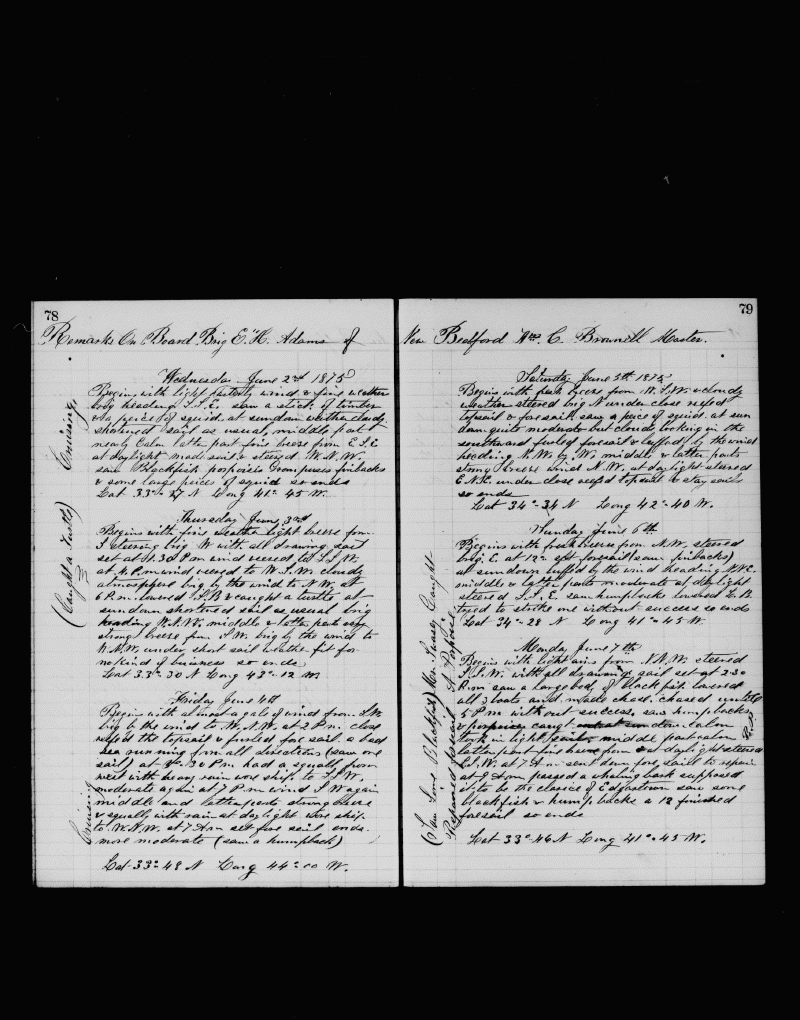 78
Remarks On Board Brig E. H. Adams of
Wednesday June 2nd 1875
Begins with light westerly wind & fine weather
brig heading S.S.E. saw a stick of timber
& a peice of squid. at sundown weather cloudy
shortened sail as usual, middle part
nearly Calm latter part fine breeze from E.S.E
at daylight made sail & steered W.N.W.
saw Blackfish porpoises Grampuses finbacks
& some large peices of squid so ends
Lat 33° 27 N Long 41° 45 W.
Cruising.
Thursday June 3rd
Begins with fine weather light breeze from
S steering brig W with all drawing sail
set at 1.30 P.m wind veered to S.S.W.
at 4 P.m wind veered to W.S.W. cloudy
atmosphere brig by the wind to N.W. at
6 P.m. lowered S.B & caught a turtle at
sundown shortened sail as usual brig
heading N.N.W. middle & latter part very
strong breeze from S.W. brig by the wind to
W.N.W. under short sail weather fit for
no kind of buisness so ends
Lat 33° 30 N Long 43° 12 W
(Caught a Turtle)
Friday June 4th
Begins with almost a gale of wind from S.W.
brig by the wind to W.N.W. at 2 P.m. close
reefed the topsail & furled foresail. a bad
sea running from all directions (saw one
sail) at 3.30 P.m had a squall from
west with heavy rain wore ship to S.S.W.
moderate again at 7 P.m wind S W again
middle and latter parts strong breeze
& squally with rain at daylight wore ship
to W.N.W. at 7 A.m set fore sail ends
more moderate (saw a humpback)
Lat 33° 48 N Long 44° 00 W.
Cruising
79
New Bedford C. Brownell Master.
Saturday June 5th 1875
Begins with fresh breeze from W.S.W. & cloudy
weather steered brig N under close reefed
topsail & foresail saw a peice of squid. at sun
down quite moderate but cloudy looking in the
southward furled foresail & luffed by the wind
heading N.W. by W. middle & latter parts
strong breeze wind N.W. at daylight steered
E.N.E. under close reefed topsail & stay sails
so ends
Lat 34° 34 N Long 42° 40 W.
Sunday June 6th
Begins with fresh breeze from N.W. steered
brig E. at 12 set foresail (saw finbacks)
at sundown luffed by the wind heading N.N.E.
middle & latter parts moderate at daylight
steered S.S.E. saw humpbacks lowered L.B.
tryed to strike one without success so ends
Lat 34° 28 N Long 41° 45 W.
Monday June 7th
Begins with light airs from N.N.W. steered
S.S.W. with all drawing sail set at 2.30
P.m saw a large body of blackfish lowered
all 3 boats and made chase. chased untill
5 P.m without success. saw humpbacks
& porpoises caught down calm
took in light sails, middle part calm
latter part fine breeze from at daylight steered
S.W. at 7 A.m sent down fore sail to repair
at 9 A.m. passed a whaling bark supposed
it to be the classic of Edgartown saw some
blackfish & humpbacks a 12 finished
foresail so ends
Lat 33° 46 N Long 41° 45 W.
Repaired foresail A Porpoise